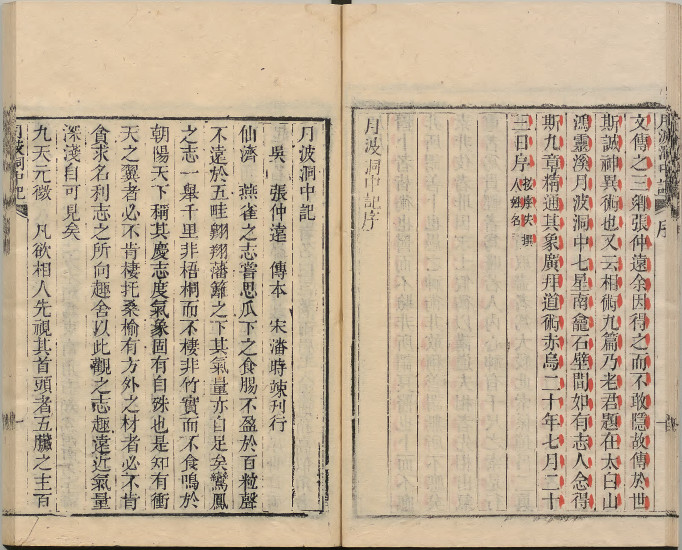 月波洞中記 序
文傳之三剡張仲遠余因得之而不敢隱故傳於世
斯誠神異術也又云相術九篇乃老君題在太白山
鴻靈溪月波洞中七星南龕石壁間如有志人念得
斯九章精通其象廣拜道術赤烏二十年七月二十
三日序 按序失撰人姓名
月波洞中記序
月波洞中記
吳 張仲遠 傳本 宋潘時竦刊行
仙濟 燕雀之志嘗思瓜下之食腸不盈於百粒聲
不遠於五畦翱翔藩籬之下其氣量亦自足矣鸞鳳
之志一舉千里非梧桐而不棲非竹實而不食鳴於
朝陽天下稱其慶志度氣象固有自殊也是知有衝
天之翼者必不肯棲托桑榆有方外之材者必不肯
貪求名利志之所向趣舍以此觀之志趣遠近氣量
深淺自可見矣
九天元微 凡欲相人先視其首頭者五臟之主百
月波洞中記